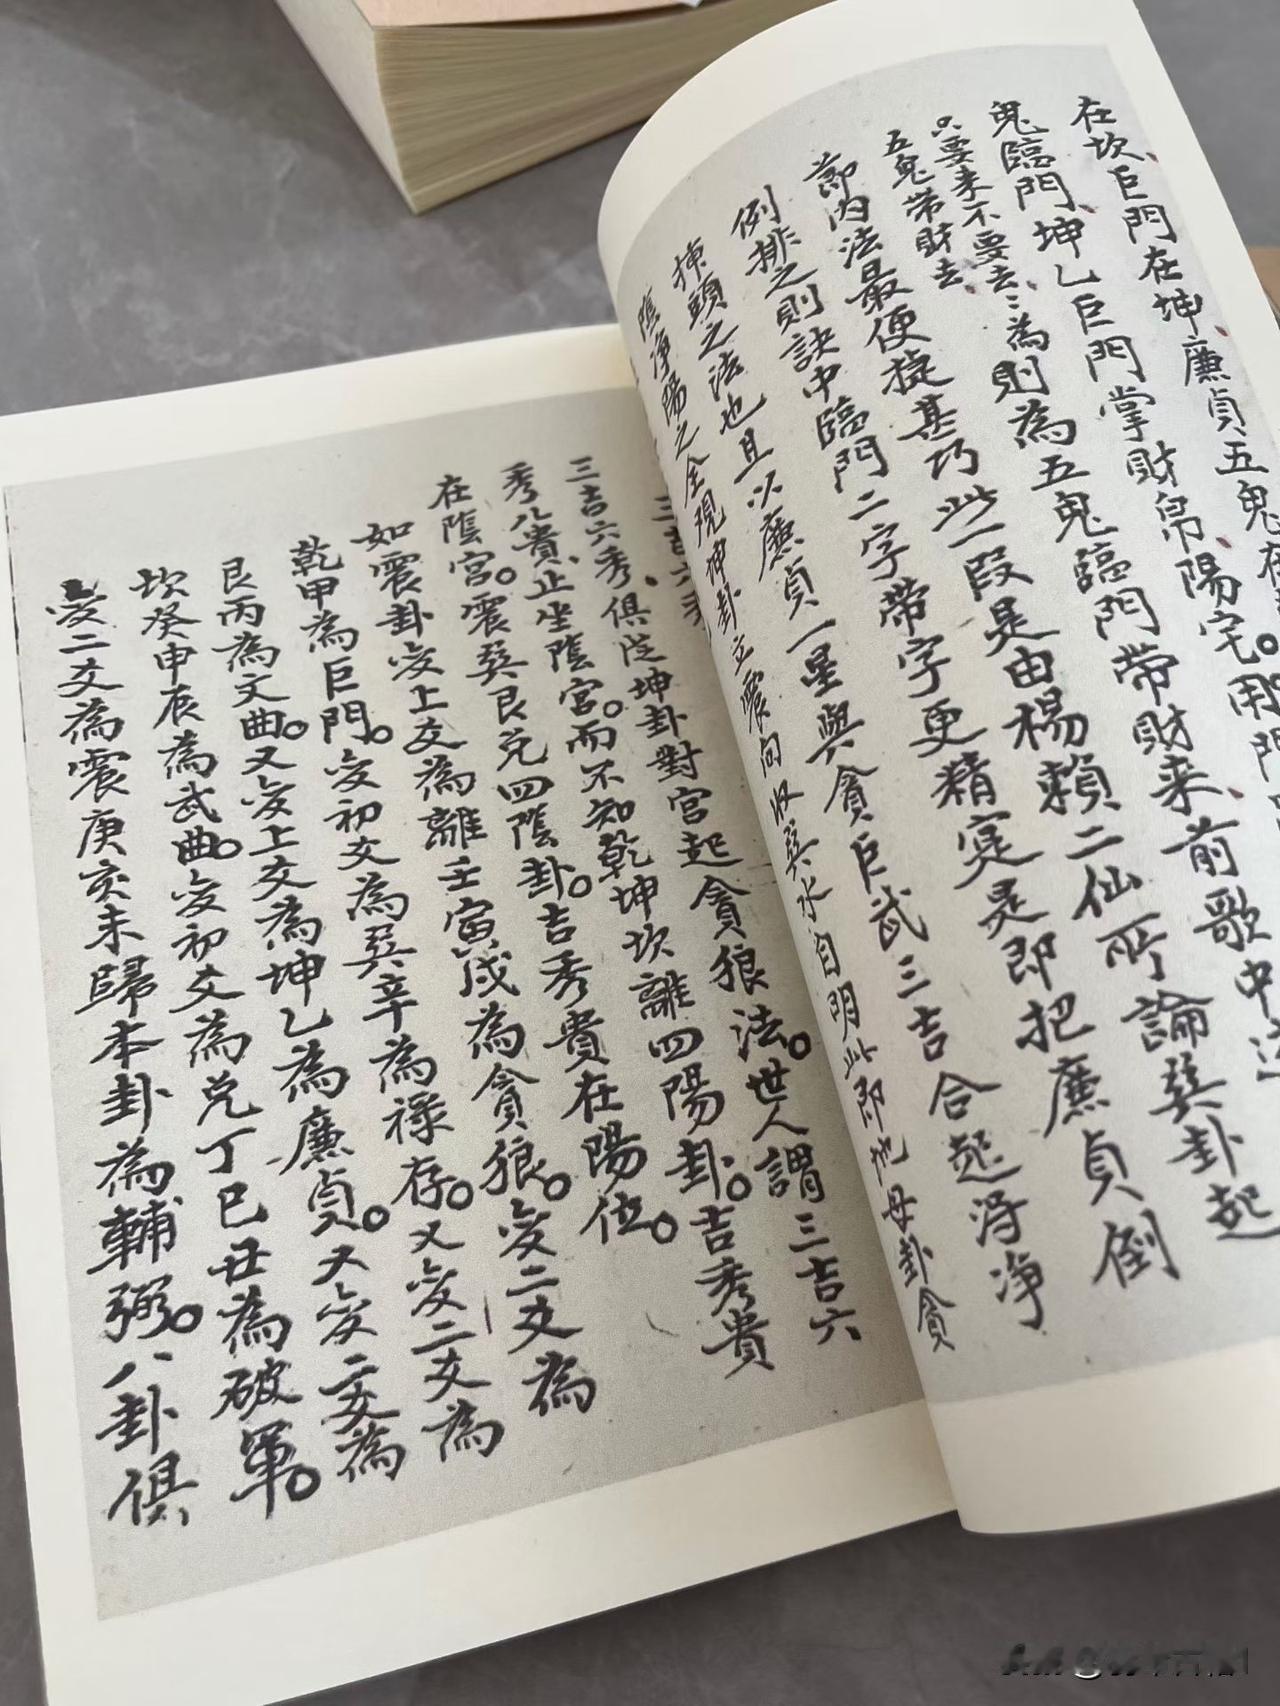 在坎、巨門在坤、廉貞五鬼在
鬼臨門、坤乙巨門掌財帛、陽宅。用門
只要来不要去〻為則為五鬼臨門带財来、前歌中
五鬼带財去、
節内法最便捷甚巧此一段是由楊賴二仙所論巽卦起
例排之則訣中臨門二字带字更精寔是即把廉貞倒
揀頭之法也且以廉貞一星與貪巨武三吉合起淂净
隂净陽之全現坤卦立震向收巽水自明此即也母卦貪
三吉六秀
三吉六秀、俱従坤卦對宫起貪狼法。世人謂三吉六
秀八貴、止坐隂宫。而不知乾坤坎離四陽卦。吉秀貴
在隂宫。震巽艮兑四隂卦。吉秀貴在陽位。
如震卦变上爻為離壬寅戌為貪狼。变二爻為
乾甲為巨門。变初爻為巽辛為禄存。又变二爻為
艮丙為文曲。又变上爻為坤乙為廉貞。又变二爻為
坎癸申辰為武曲。变初爻為兑丁巳丑為破軍。
变二爻為震庚亥未歸本卦為輔弼。八卦俱